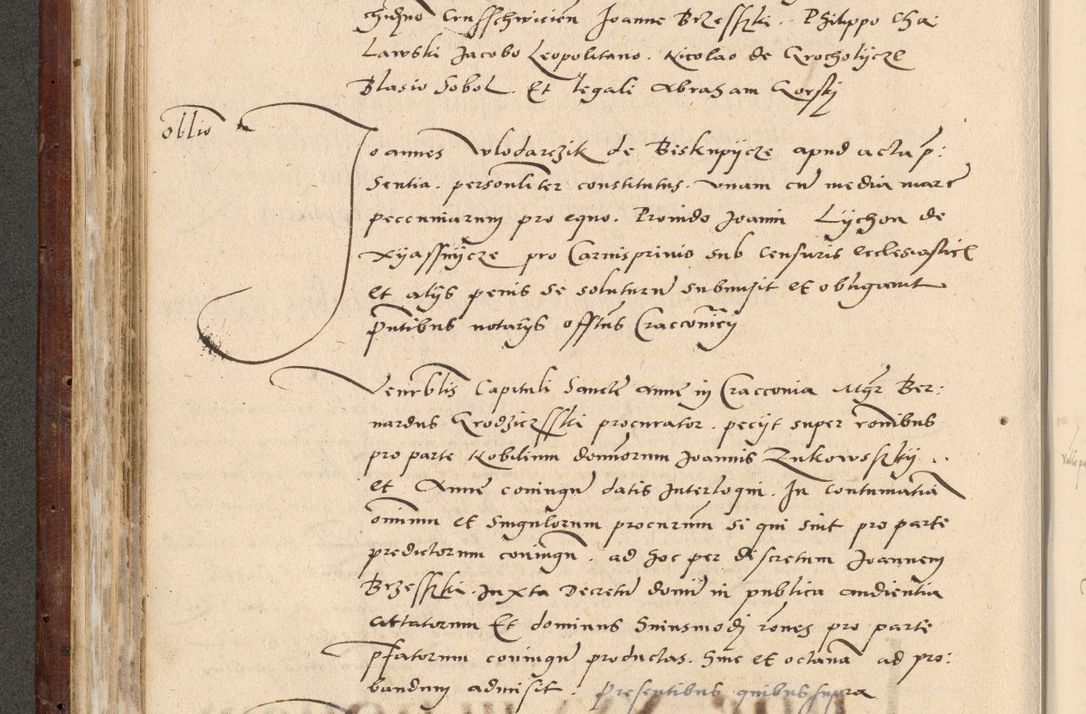 Joanne Brzesski. Philippo Cha-
Lawski Jacobo Leopolitano. Nicolao de Grocholijcze
Blasio Sobol. Et legali Abraham Gorskj
oblio
Joannes Wlodarczik de Biskupijcze apud acta p:
sentia. personliter constitutus. vnam cū media marc
pecuniarum pro equo. Prouido Joanni Lijchon de
pro Carnispriuio sub Censuris Ecclesiastic
et alijs penis se soluturū submisit et obligauit
pn̄tibus notarijs officiis
Venerblis Capituli Sancte Anne in Cracouia Mgr Ber:
nardus Grodziczski procurator. pecijt super ronibus
pro parte Nobilium domiorum Joannis Zukowsskij
et Anne coniugū datis Interloqui. In contumatiā
omnium et singulorum procurium si qui sint pro parte
predictorum coniugū. ad hoc per discretum Joannem
Brzesski. Juxta Decretū domi in publica audientia
Cittatorum Et dominus huiusmodj rōnes pro parte
pfatorum coniugū productas. hinc et octauā ad pro:
bandum admisit. Presentibus quibus supra